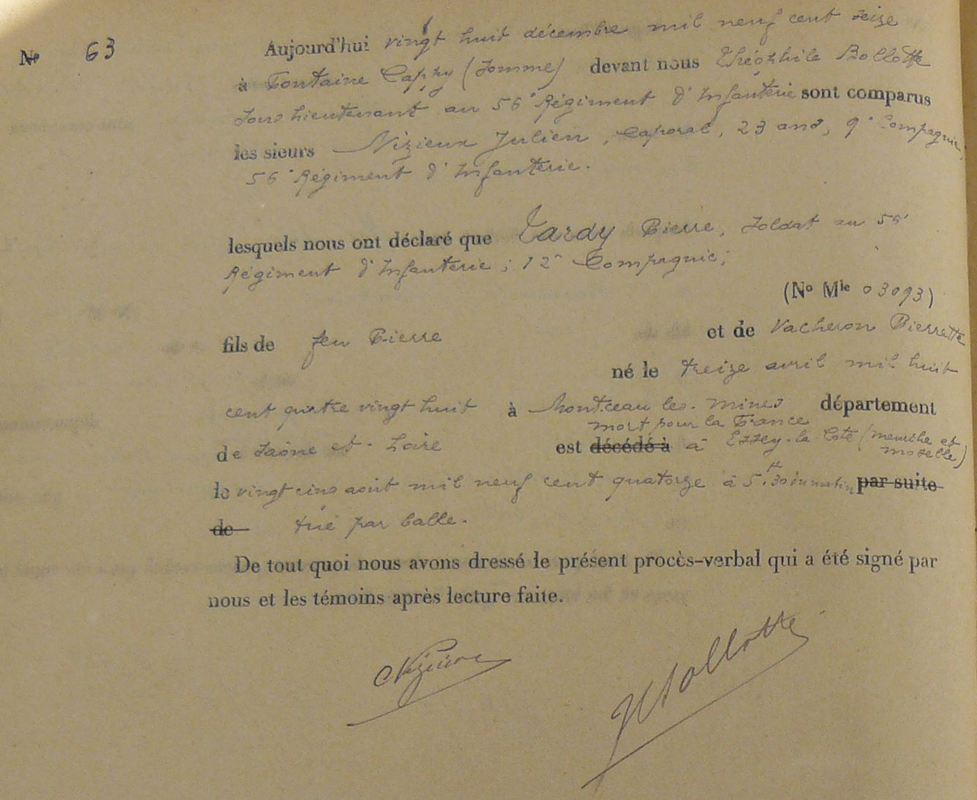 No 63
Aujourd'hui vingt huit décembre mil neuf cent seize
à Fontaine Cappy (Somme) devant nous Théophile Bollotte
sous lieutenant au 56e Régiment d'Infanterie sont comparus
les sieurs Nizieux Julien, Caporal, 23 ans, 9e Compagnie,
56e Régiment d'Infanterie.
lesquels nous ont déclaré que Tardy Pierre, Soldat au 56e
Régiment d'Infanterie; 12e Compagnie;
(No Mle 03093)
fils de feu Pierre et de Vacheron Pierrette
né le treize avril mil huit
cent quatre vingt huit à Montceau les-mines département
mort pour la France
de Saône et-Loire est décédé à à Essey-la Côte (meurthe et moselle)
le vingt cinq août mil neuf cent quatorze à 5h30 du matin par suite
de tué par balle.
De tout quoi nous avons dressé le présent procès-verbal qui a été signé par
nous et les témoins après lecture faite.
Nizieux
Bollotte